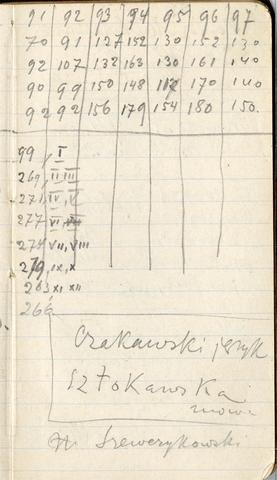 91 92 93 94 95 96 97
70 91 127 152 130 152 130
92 107 132 163 130 161 140
90 99 150 148 112 170 140
92 92 156 179 154 180 150
99, I
269, II III
271, IV, V
277 VI
274 VII, VIII
279, IX, X
263 XI XII
266
Czakawski język
SZTOKAWSKA
mowa
Szewerykowski